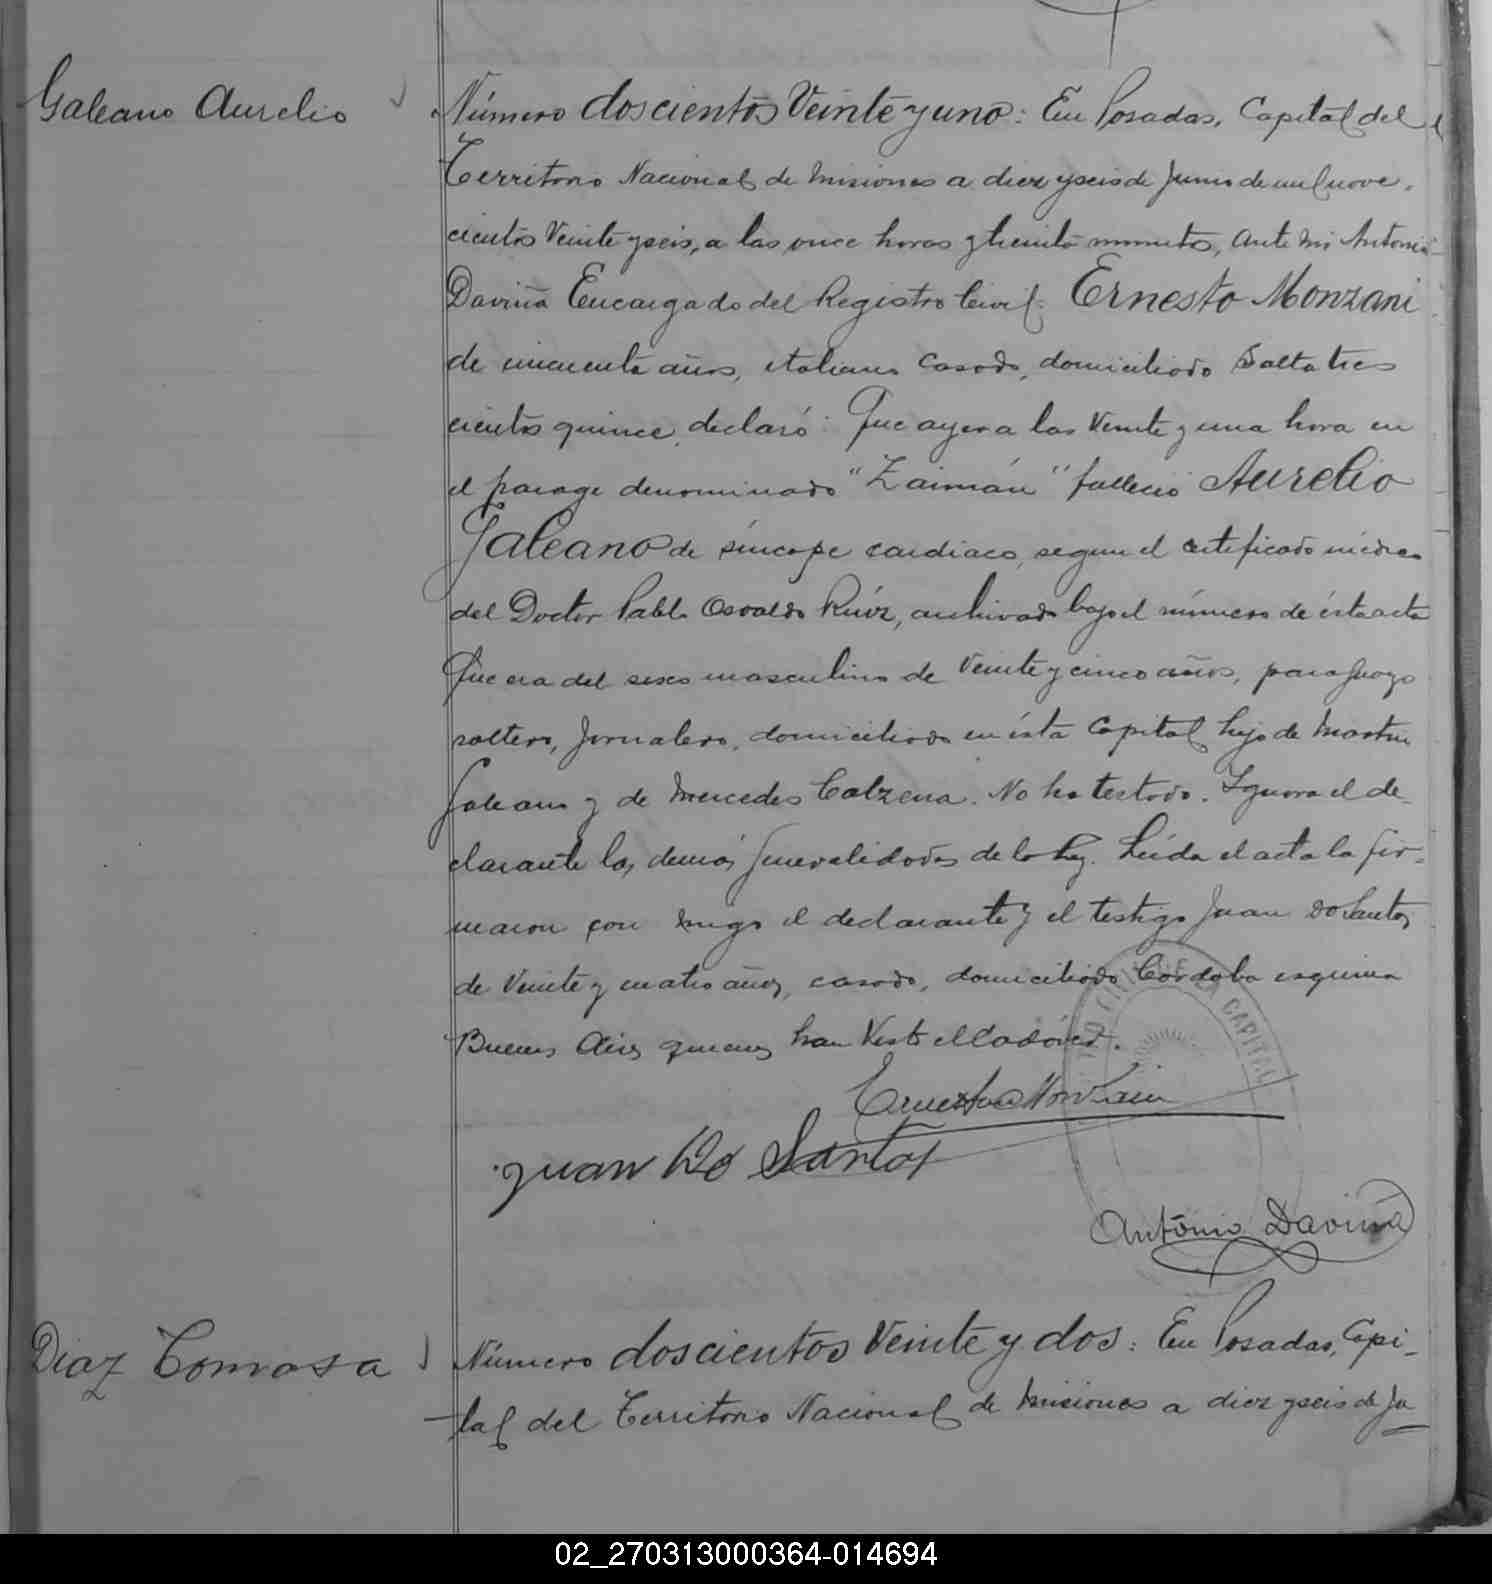 Galeano Aurelio
Número doscientos Veinte y uno: En Posadas, Capital del
Territorio Nacional de Misiones a diez y seis de Junio de mil nove-
cientos Veinte y seis, a las once horas y treinta minutos, ante mi Antonio
Daviña Encargado del Registro Civil: Ernesto Monzani
de cincuenta años, italiano casado, domiciliado Salta tres
cientos quince, declaró: Que ayer a las Veinte y una hora en
el parage denominado "Zaimán" falleció Aurelio
Galeano de síncope cardiaco, segun el certificado médico
del Doctor Pablo Osvaldo Ruíz, archivado bajo el número de ésta acta
Que era del sexo masculino de Veinte y cinco años, paraguayo
soltero, jornalero, domiciliado en ésta Capital, hijo de Martin
Galeano y de Mercedes Calzena. No ha testado. Ignora el de-
clarante las demás generalidades de la ley. Leída el acta la fir-
maron con migo el declarante y el testigo Juan Do Santos,
de Veinte y cuatro años, casado, domiciliado Córdoba esquina
Buenos Aires quienes han Visto el Cadáver.
Ernesto Monzani
Juan Do Santos
Antonio Daviña
Diaz Tomasa
Número doscientos Veinte y dos: En Posadas, Capi-
tal del Territorio Nacional de Misiones a diez y seis de Ju
02_270313000364-014694